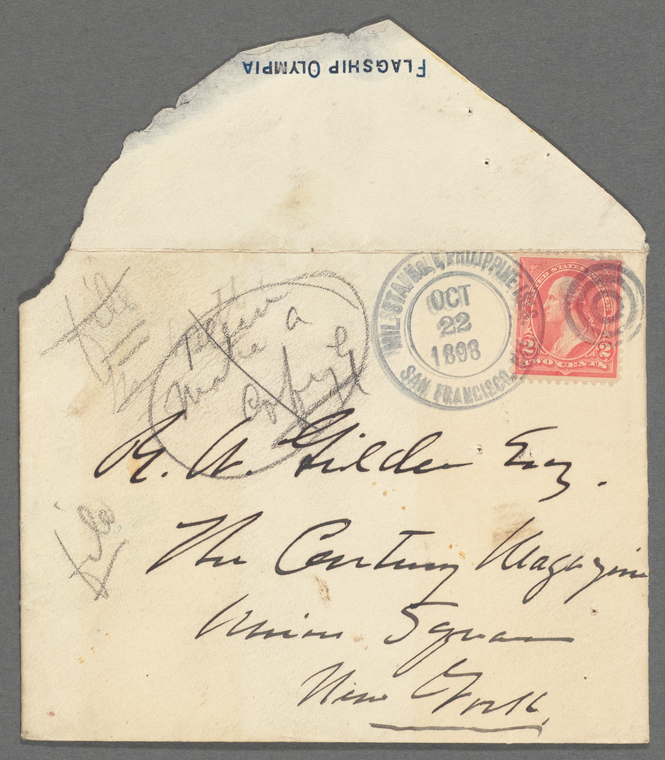 FLAGSHIP OLYMPIA
MIL. STA. No. 1, PHILIPPINE IS.
OCT
22
1898
SAN FRANCISCO,
UNITED STATES
TWO CENTS
2 2
file
make a
copy G
R. W. Gilder Esq.
file
The Century Magazine
Union Square
New York.